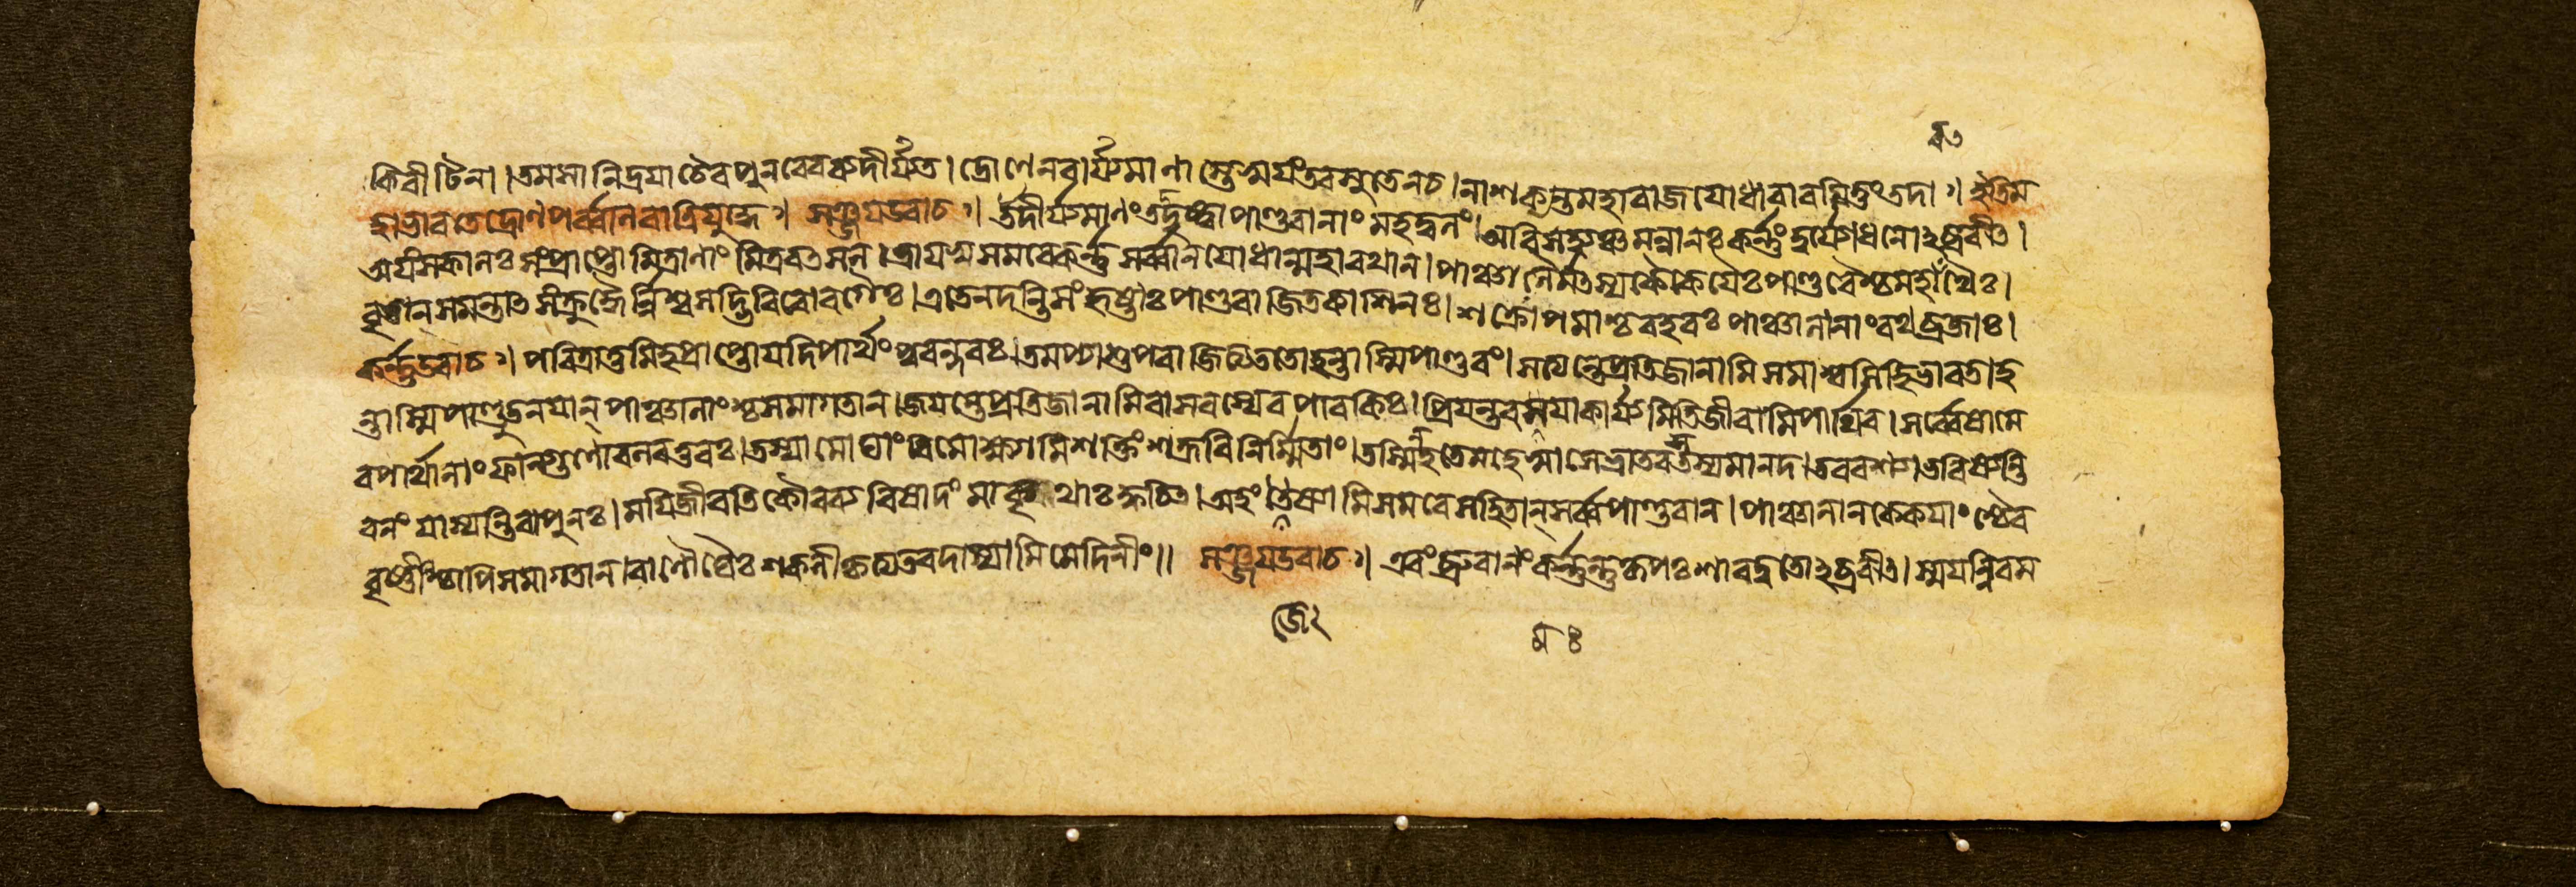 কিরীটিনা। তমসা নিদ্রয়া চৈব পুনরেব ব্যদীর্য্যত। দ্রোণেন বার্য্যমাণাস্তে স্বয়ং তব সুতেন চ। নাশক্যন্ত মহারাজ যোধা বারয়িতুং তদা ঃ। ইতি ম
হাভারতে দ্রোণপর্ব্বনি রাত্রিযুদ্ধে ঃ। সঞ্জয় উবাচ ঃ। উদীর্য্যমাণং তদ্দৃষ্ট্বা পাণ্ডবানাং মহদ্বলং। অবিষহ্যঞ্চ মন্বানঃ কর্ণ্ণং দুর্যোধনোঽব্রবীৎ।
অয়ং স কালঃ সংপ্রাপ্তো মিত্রাণাং মিত্রবৎসল। ত্রায়স্ব সমরে কর্ণ্ণ সর্ব্বান যোধান্মহারথান। পাঞ্চালৈর্মৎস্যকৈকেয়ৈঃ পাণ্ডবৈশ্চ মহারথৈঃ।
বৃতান্ সমন্তাৎ সংক্রুদ্ধৈর্নিশ্বসদ্ভিরিবোরগৈঃ। এতে নদন্তি সংহৃষ্টাঃ পাণ্ডবা জিতকাশিনঃ। শক্রোপমাশ্চ বহবঃ পাঞ্চালানাং রথব্রজাঃ।
কর্ণ্ণ উবাচ ঃ। পরিত্রাতুমিহ প্রাপ্তো যদি পার্থং পুরন্দরঃ। তমপ্যাশু পরাজিত্য ততো হন্তাস্মি পাণ্ডবং। সত্যন্তে প্রতিজানামি সমাশ্বসিহি ভারত। হ
ন্তাস্মি পাণ্ডুতনয়ান্ পাঞ্চালানাংশ্চ সমাগতান। জয়ন্তে প্রতিজানামি বাসবস্যেব পাবকিঃ। প্রিয়ন্তব ময়া কার্য্যমিতি জীবামি পার্থিব। সর্ব্বেষামে
ব পার্থানাং ফাল্গুণো বলবত্তরঃ। তস্যামোঘাং বিমোক্ষ্যামি শক্তিং শক্রবিনির্ম্মিতাং। তস্মিন্হতে মহেষ্বাসে ভ্রাতরস্তস্য মানদ। তব বশ্যা ভবিষ্যন্তি
বনং যাস্যন্তি বা পুনঃ। ময়ি জীবতি কৌরব্য বিষাদং মা কৃথাঃ ক্বচিত। অহং জেষ্যামি সমরে সহিতান্ সর্ব্বপাণ্ডবান। পাঞ্চালান কেকয়াংশ্চৈব
বৃষ্ণীংশ্চাপি সমাগতান। বাণৌঘৈঃ শকলীকৃত্য তব দাস্যামি মেদিনীং॥ সঞ্জয় উবাচ ঃ। এবং ব্রুবাণং কর্ণ্ণন্তু কৃপঃ শারদ্বতোঽব্রবীৎ। স্ময়ন্নিব ম
জে২